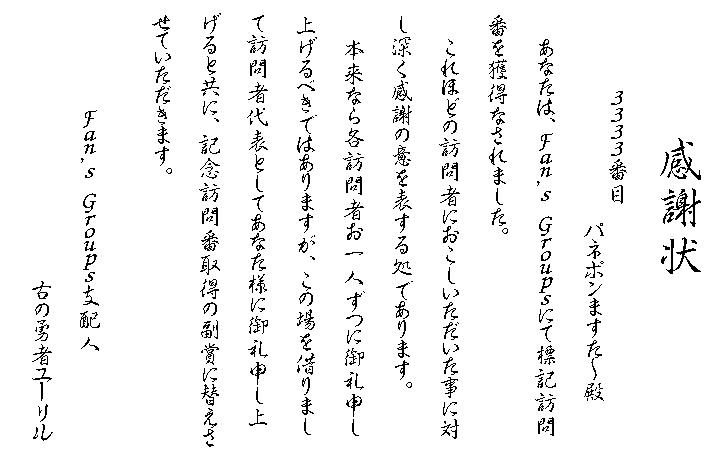 感謝状
3333番目
パネポンますた〜殿
あなたは、Fan's Groupsにて標記訪問
番を獲得なされました。
これほどの訪問者におこしいただいた事に対
し深く感謝の意を表する処であります。
本来なら各訪問者お一人ずつに御礼申し
上げるべきではありますが、この場を借りまし
て訪問者代表としてあなた様に御礼申し上
げると共に、記念訪問番取得の副賞に替えさ
せていただきます。
Fan's Groups支配人
古の勇者ユーリル